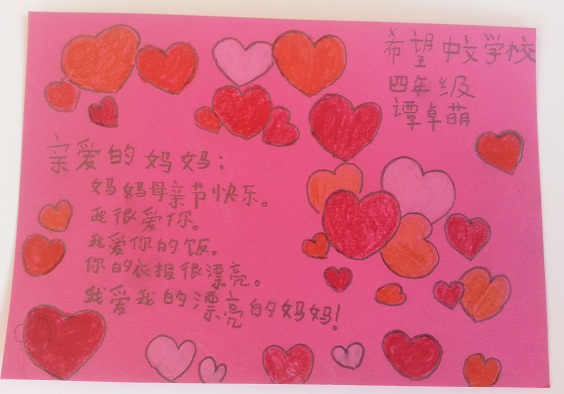 希望中文学校
四年级
谭卓萌
亲爱的妈妈：
妈妈母亲节快乐。
我很爱你。
我爱你的饭。
你的衣报很漂亮。
我爱我的漂亮的妈妈！